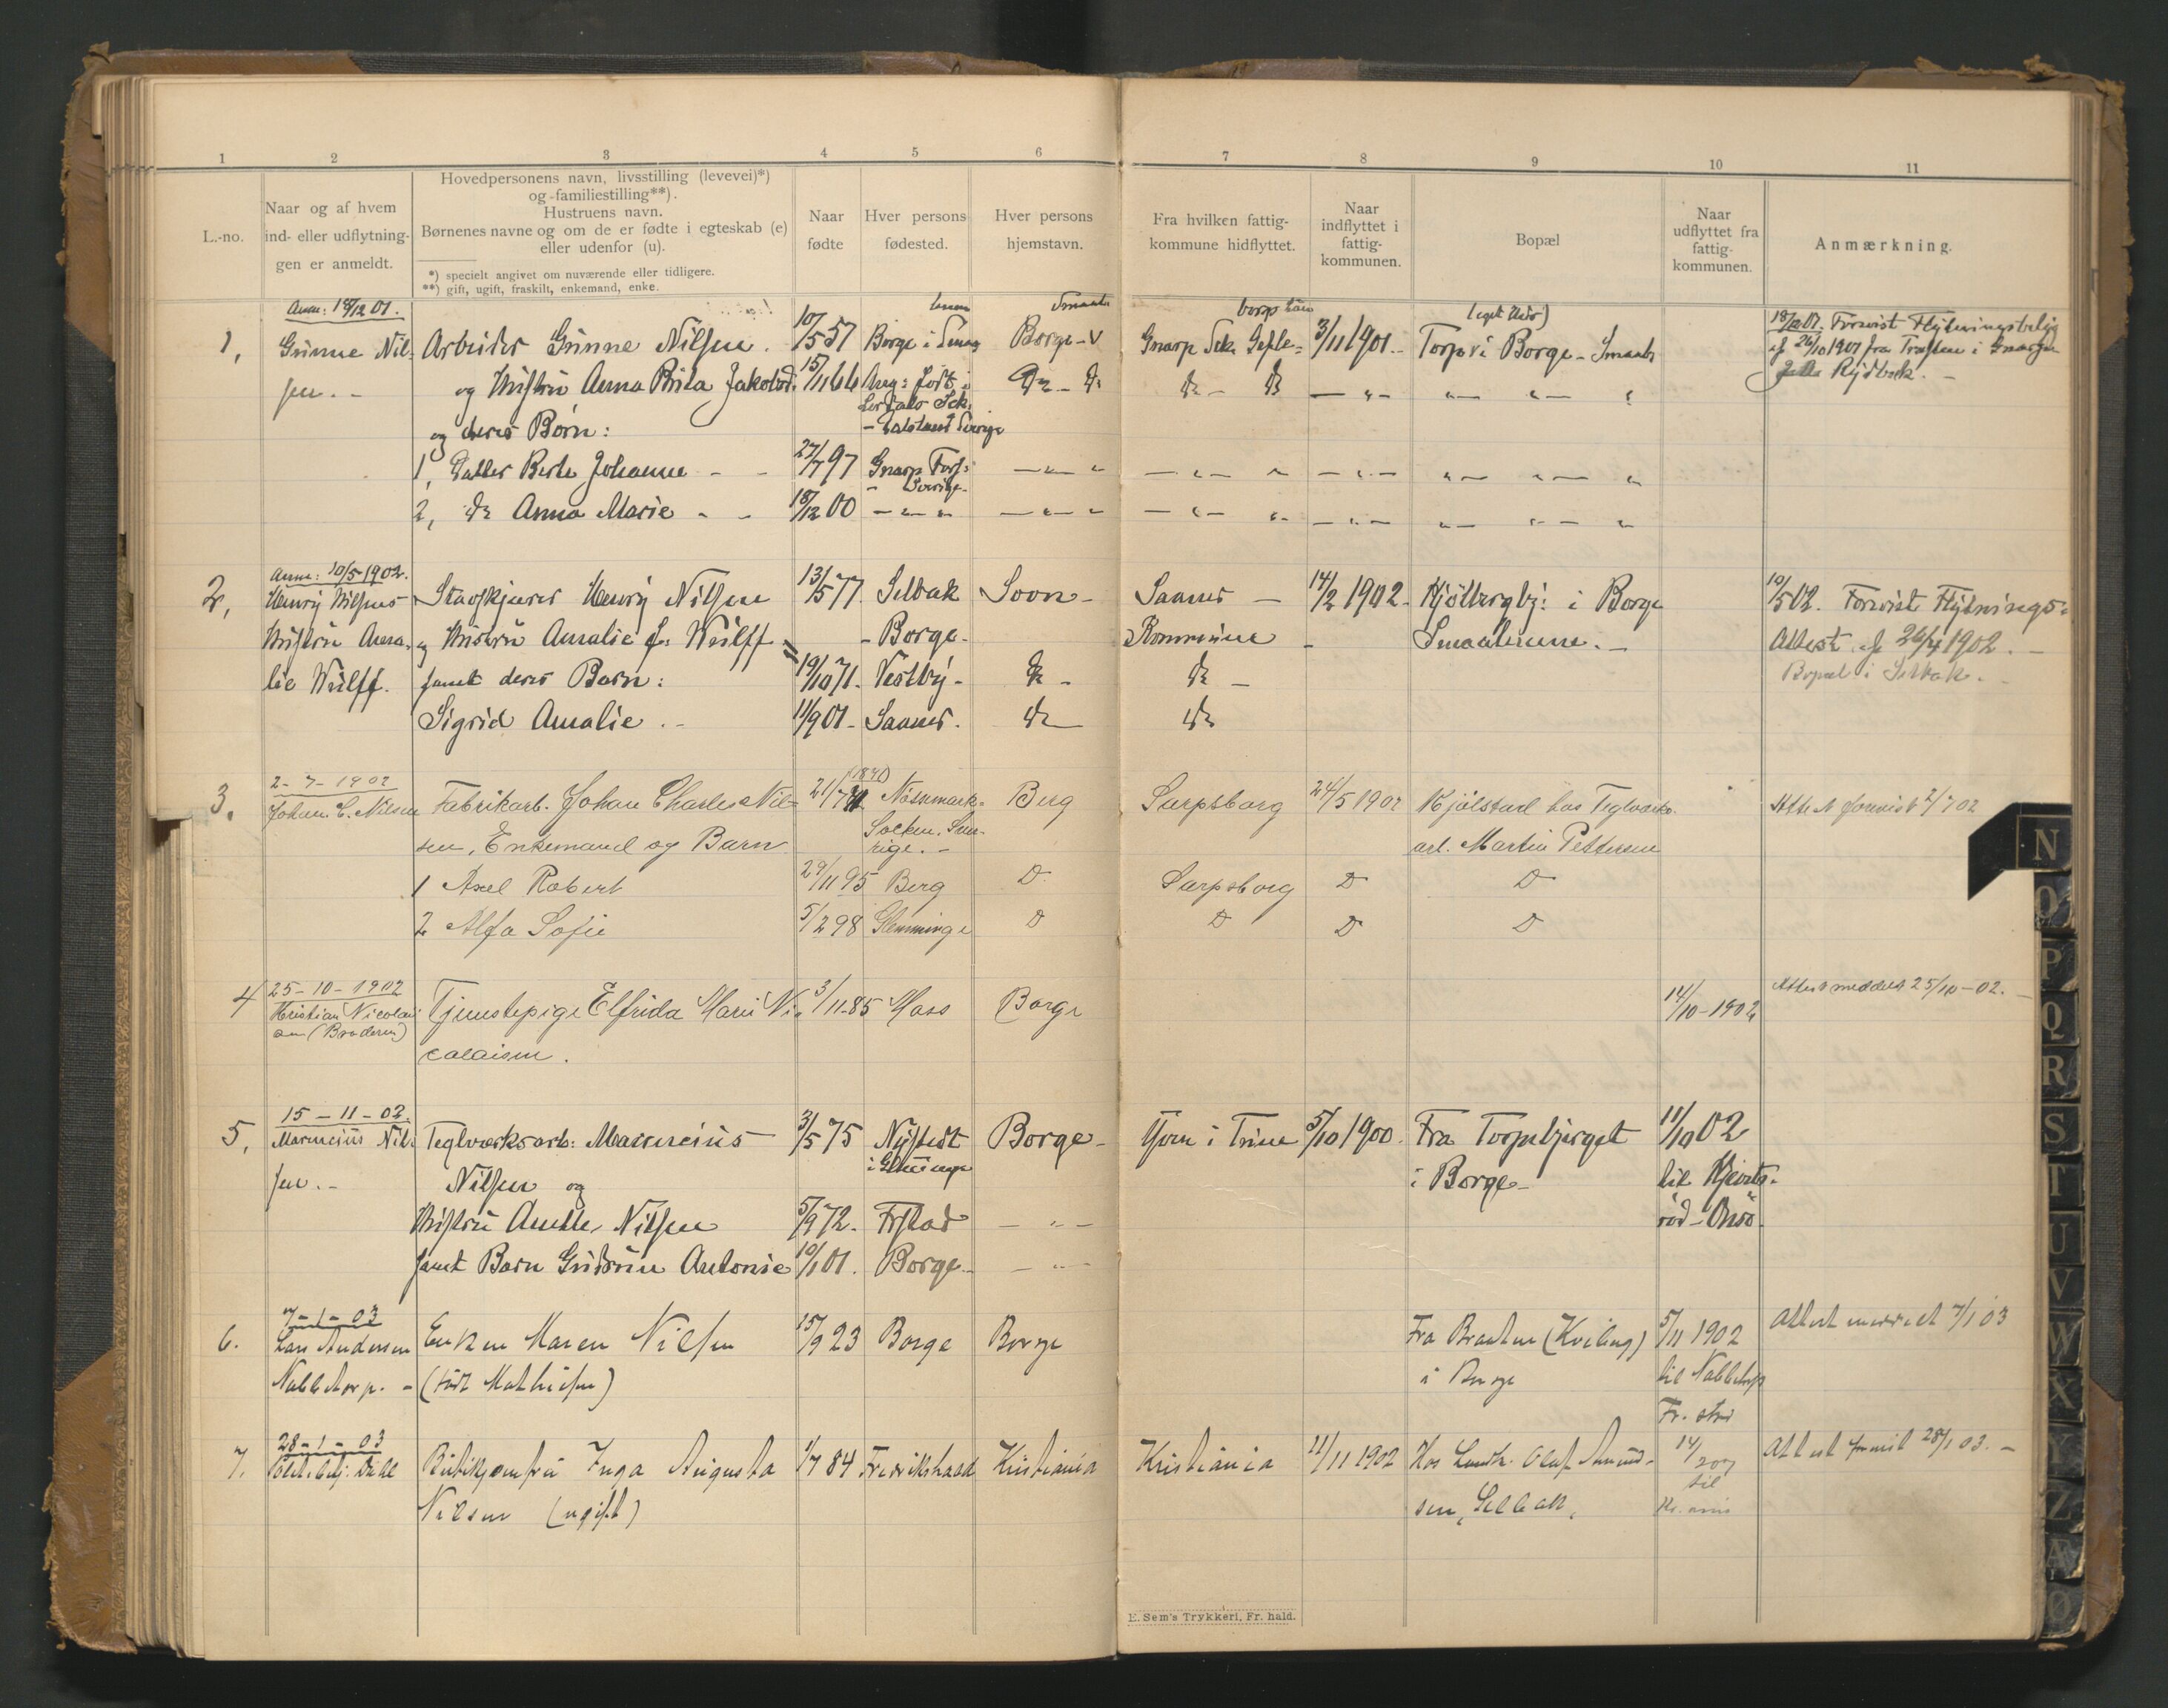 1 2 3 4 5 6 7 8 9 10 11
L.-no.
Naar og af hvem
ind- eller udflytnin-
gen er anmeldt.
Hovedpersonens navn, livsstilling (levevei)*)
og familiestilling**).
Hustruens navn.
Børnenes navne og om de er fødte i egteskab (e)
eller udenfor (u).
*) specielt angivet om nuværende eller tidligere.
**) gift, ugift, fraskilt, enkemand, enke.
Naar
fødte
Hver persons
fødested.
Hver persons
hjemstavn.
Fra hvilken fattig-
kommune hidflyttet.
Naar
indflyttet i
fattig-
kommunen.
Bopæl
Naar
udflyttet fra
fattig-
kommunen.
Anmærkning.
Anm: 18/12 01.
1, Gunne Nil- Arbeider Gunne Nilsen. 10/5 57 Borge i Borge Gnarp Sck. Gefle- 3/11 1901. Torp i Borge - Smaal 18/12 01. Forevist Flytningsbetyg
sen. - og Hustru Anna Brita Jakobsd. 15/11 66 af 26/10 1901 fra
Rydbeck. -
og deres Børn:
1, Datter Berte Johanne - - 27/7 97 Gnarp
Sverige
2, do Anna Marie - - 18/12 00
Anm: 10/5 1902.
2, Henry Nilsens Henry Nilsen 13/5 77 Selbak Soon - Saaner - 14/2 1902. Kjølbergby: i Borge 10/5 02. Forevist Flytnings-
Hustru Ama- og Hustru Amalie f. Wulff - Borge. Kommune Smaalenene. - Attest af 26/4 1902. -
lie Wulff. samt deres Barn: 19/10 71. Vestby - do - do - Bopæl i Selbak. -
Sigrid Amalie. - 11/9 01 - Saaner. do do
2-7-1902 (1871)
3. Johan C. Nilsen Fabrikarb. Johan Charles Nil- 21/7 Berg Sarpsborg 24/5 1902 Kjølstad hos Teglværks- Attest forevist 2/7 02
sen, Enkemand og Barn Socken. Sve-
rige. - arb. Martin Pettersen
1 Axel Robert 29/11 95 Berg D Sarpsborg D D
2 Alfa Sofie 5/2 98 Glemminge D D D D
25-10-1902
4 Kristian Nicolai- Tjenestepige Elfrida Marie Ni- 3/11-85 Moss Borge 14/10-1902 Attest meddelt 25/10-02. -
sen (Broderen) colaisen.
15-11-02.
5, Marensius Nil- Teglværksarb: Marensius 3/5 75 Nystedt Borge - i Trine 5/10 1900. Fra Torpebjerget 11/10 02
sen. - Nilsen og i Glemminge i Borge - til
Hustru Nilsen 5/9 72. Frstad - " - rød - Onsø.
samt Barn Gudrun Antonie 10/1 01. Borge - - " -
7-1-03
6. Lars Andersen Enken Maren Nilsen 15/9 23 Borge Borge Fra Braaten (Kviling) 5/11 1902 Attest meddelt 7/1 03
Nabbetorp. - (født Mathiesen) i Borge til Nabbetorp
Fr. stad
28-1-03
7. Dahl Butikjomfru Inga Augusta 1/7 84 Fredrikshald Kristiania Kristiania 11/11 1902 Hos Landh. Olaf Amund- 14/2 07 Attest forevist 28/1 03. -
Nilsen (ugift) sen, Selbak, til
Kr. ania
E. Sem's Trykkeri, Fr. hald.
N
O
P
Q
R
S
T
U
V
W
X
Y
Z
Æ
Ø